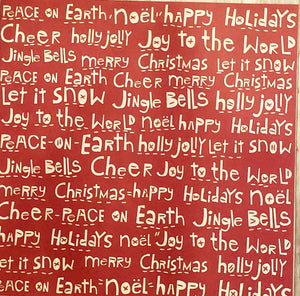 PEACE ON EARTH, noël" HAPPY HolidAYS
CHEER hollyjolly Joy to the WORLD
Jingle BEllS mERRy CHRistmAS lEt it SNOW
PEACE ON EARTH CHEER mERRy CHRistmAS
lEt it SNOW Jingle BEllS hollyjolly
Joy to the WORLD noël HAPPY HolidAYS
PEACE-ON-EARTH hollyjolly lEt it SNOW
Jingle BEllS CHEER Joy to the WORLD
mERRy CHRistmAS=HAPPY HolidAYS noël
CHEER-PEACE ON EARTH Jingle BEllS
HAPPY HolidAYS noël "Joy to the WORLD
lEt it SNOW mERRy CHRistmAS hollyjolly
PEACE ON EARTH-noël-HAPPY HolidAYS